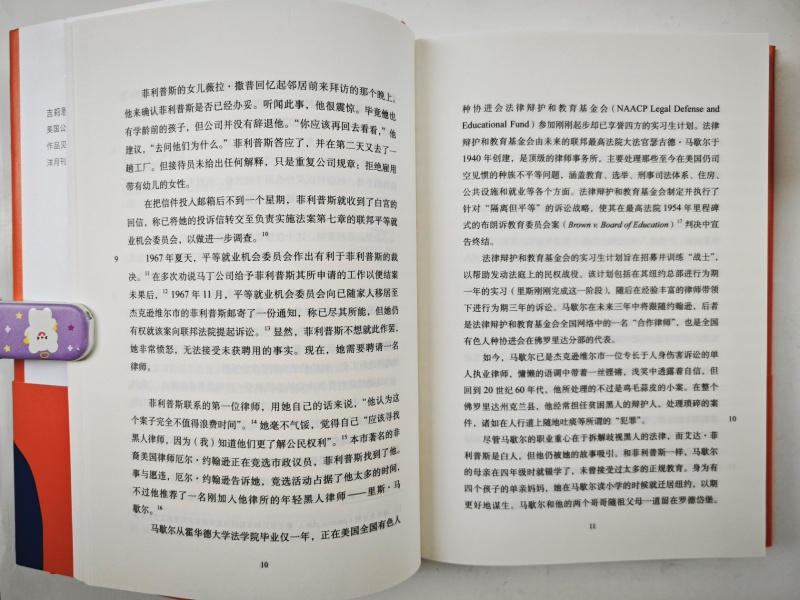 吉莉恩
美国公
作品见
洋月刊
菲利普斯的女儿薇拉·撒普回忆起邻居前来拜访的那个晚上。
他来确认菲利普斯是否已经办妥。听闻此事，他很震惊。毕竟他也
有学龄前的孩子，但公司并没有辞退他。“你应该再回去看看，”他
建议，“去问他们为什么。”菲利普斯答应了，并在第二天又去了一
趟工厂。但接待员未给出任何解释，只是重复公司规章：拒绝雇用
带有幼儿的女性。
在把信件投入邮箱后不到一个星期，菲利普斯就收到了白宫的
回信，称已将她的投诉信转交至负责实施法案第七章的联邦平等就
业机会委员会，以做进一步调查。10
9
1967 年夏天，平等就业机会委员会作出有利于菲利普斯的裁
决。11 在多次劝说马丁公司给予菲利普斯其所申请的工作以便结案
未果后，12 1967 年 11 月，平等就业机会委员会向已随家人移居至
杰克逊维尔市的菲利普斯邮寄了一份通知，称已尽其所能，但她仍
有权就该案向联邦法院提起诉讼。13 显然，菲利普斯不想就此作罢，
她非常愤怒，无法接受未获聘用的事实。现在，她需要聘请一名
律师。
菲利普斯联系的第一位律师，用她自己的话来说，“他认为这
个案子完全不值得浪费时间”。14 她毫不气馁，觉得自己“应该寻找
黑人律师，因为（我）知道他们更了解公民权利”。15 本市著名的非
裔美国律师厄尔·约翰逊正在竞选市政议员，菲利普斯找到了他。
事与愿违，厄尔·约翰逊告诉她，竞选活动占据了他太多的时间，
不过他推荐了一名刚加入他律所的年轻黑人律师——里斯·马
歇尔。16
马歇尔从霍华德大学法学院毕业仅一年，正在美国全国有色人
10
种协进会法律辩护和教育基金会（NAACP Legal Defense and
Educational Fund）参加刚刚起步却已享誉四方的实习生计划。法律
辩护和教育基金会由未来的联邦最高法院大法官瑟古德·马歇尔于
1940 年创建，是顶级的律师事务所，主要处理那些至今在美国仍司
空见惯的种族不平等问题，涵盖教育、选举、刑事司法体系、住房、
公共设施和就业等各个方面。法律辩护和教育基金会制定并执行了
针对“隔离但平等”的诉讼战略，使其在最高法院 1954 年里程碑
式的布朗诉教育委员会案（Brown v. Board of Education）17 判决中宣
告终结。
法律辩护和教育基金会的实习生计划旨在招募并训练“战士”，
以帮助发动法庭上的民权战役。该计划包括在其纽约总部进行为期
一年的实习（里斯刚刚完成这一阶段），随后在经验丰富的律师带领
下进行为期三年的诉讼。马歇尔在未来三年中将跟随约翰逊，后者
是法律辩护和教育基金会全国网络中的一名“合作律师”，也是全国
有色人种协进会在佛罗里达分部的代表。
如今，马歇尔已是杰克逊维尔市一位专长于人身伤害诉讼的单
人执业律师，慵懒的语调中带着一丝铿锵，浅笑中透露着自信，但
回到 20 世纪 60 年代，他所处理的不过是鸡毛蒜皮的小案。在整个
佛罗里达州克兰县，他经常担任贫困黑人的辩护人，处理琐碎的案
件，诸如在人行道上随地吐痰等所谓的“犯罪”。
10
尽管马歇尔的职业重心在于拆解歧视黑人的法律，而艾达·菲
利普斯是白人，但他仍被她的故事吸引。和菲利普斯一样，马歇尔
的母亲在四年级时就辍学了，未曾接受过太多的正规教育。身为有
四个孩子的单亲妈妈，她在马歇尔读小学的时候就迁居纽约，以期
更好地谋生。马歇尔和他的两个哥哥随祖父母一道留在罗德岱堡。
11